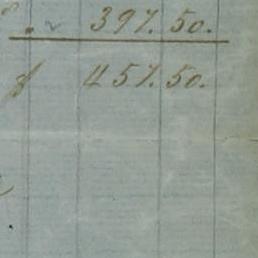 397. 50.
f 457. 50.